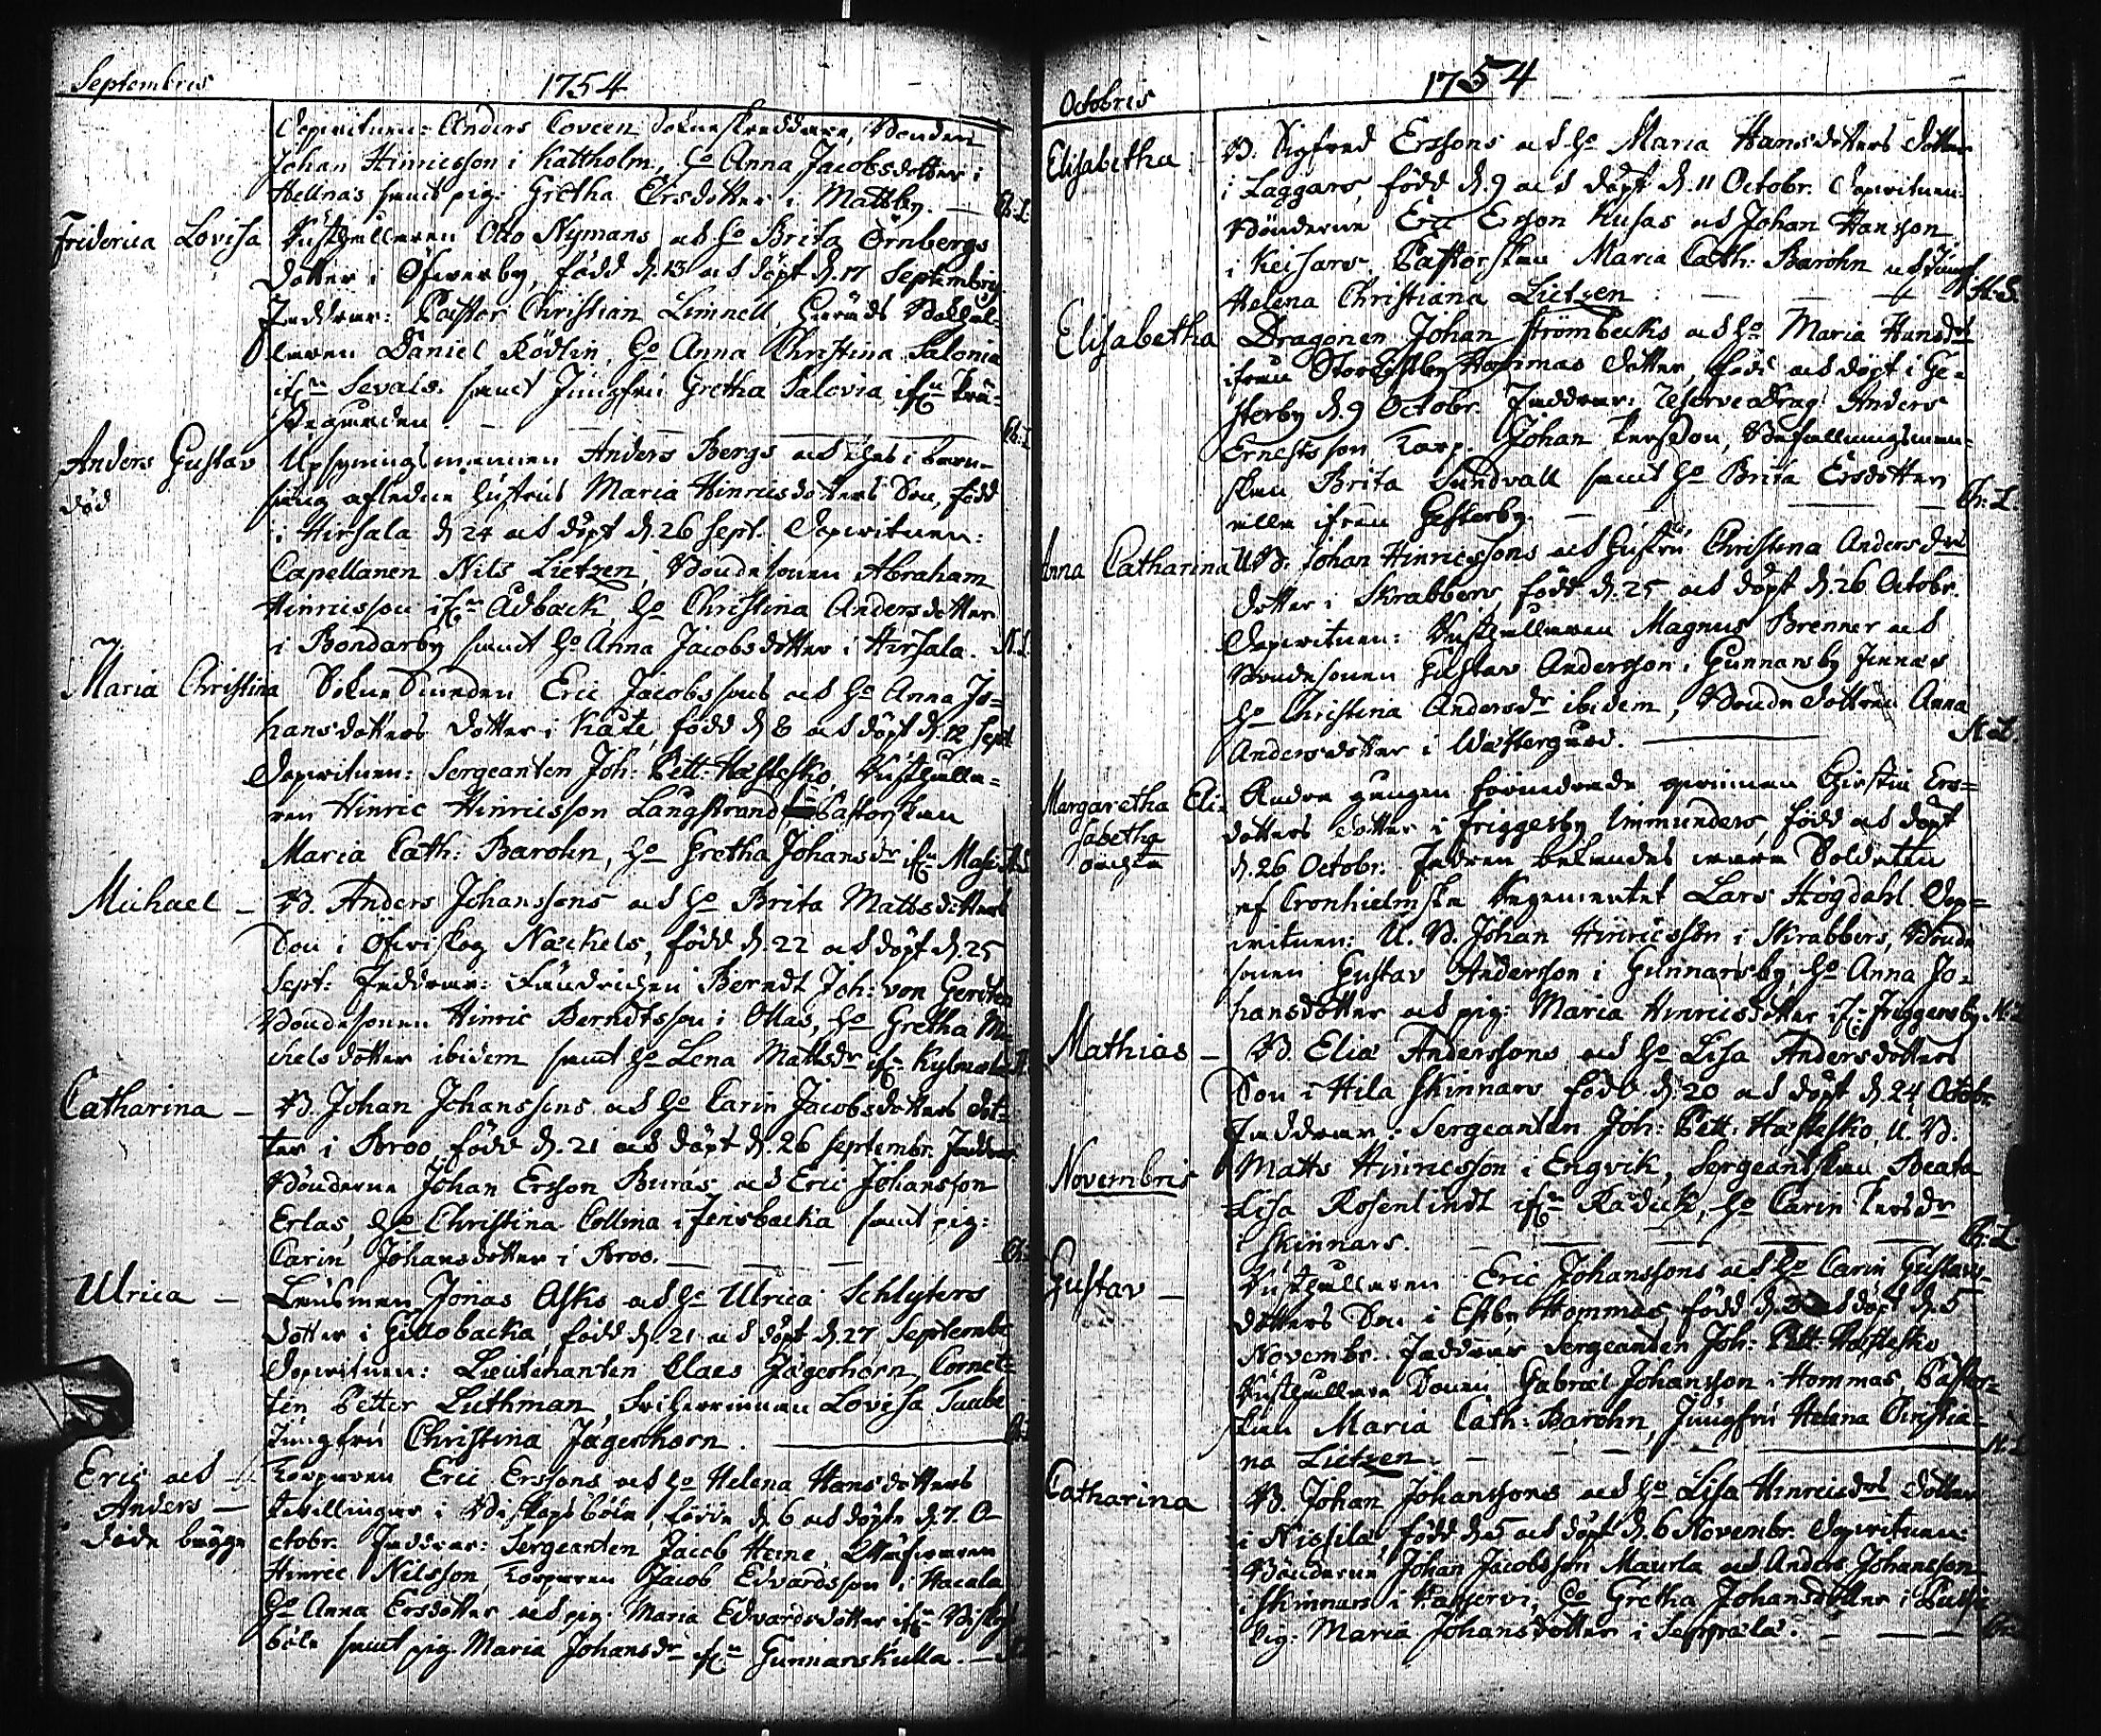 Septembris
1754
Dopwitnen: Anders Loveen Sokneskreddare, Bonden
Johan Hinricsson i Kattholm, ho Anna Jacobsdotter i
Hellnäs samt pig: Gretha Ersdotter i Mattby. Ch: L.
Friderica Lovisa
Rusthållaren Otto Nymans och ho Brita Örnbergs
dotter i Öfwerby, född d. 13 och döpt d. 17 Septembris
Faddrar: Pastor Christian Limnell, Härads
Daniel Rödlin, ho Anna Christina Salonia
ifrn Sevals. samt Jungfru Gretha Salovia ifrn
Ch: L
Anders Gustav
död
Upsyningsmannen Anders Bergs och thes i barn-
säng aflidne hustrus Maria Hinricsdotters Son, född
i Hirsala d 24 och döpt d. 26 Sept. Dopwitnen:
Capellanen Nils Lietzen, Bondesonen Abraham
Hinricsson ifrn Ådback, ho Christina Andersdotter
i Bondarby samt ho Anna Jacobsdotter i Hirsala. N: L.
Maria Christina
Eric Jacobssons och ho Anna Jo=
hansdotters dotter i Kaute, född d 8 och döpt d. 12 Sept
Dopwitnen: Sergeanten Joh: Pett: Hästesko, Rusthålla=
ren Hinric Hinricsson Långstrand, Pastorskan
Maria Cath: Barohn, ho Gretha Johansdr ifrn
Michael –
B. Anders Johanssons och ho Brita Mattsdotters
Son i Öfwerskog Näckels, född d. 22 och döpt d. 25
Sept: Faddrar: Fändrichen Berndt Joh: von Gerdten
Bondesonen Hinric Berndtsson i Ollas, ho Gretha Mi
chelsdotter ibidem samt ho Lena Mattsdr ifrn Kylmälä
Catharina –
B. Johan Johanssons och ho Carin Jacobsdotters dot=
ter i Broo född d. 21 och döpt d. 26 Septembr. Faddrar
Bönderne Johan Ersson Buras och Eric Johansson
Erlas, ho Christina Collina i Jerisbacka samt pig:
Carin Johansdotter i Broo. Ch:
Ulrica –
Länsman Jonas Asks och ho Ulrica Schlyters
dotter i Gillobacka, född d. 21 och döpt d. 27 Septembr
Dopwitnen: Lieutenanten Claes Jägerhorn, Cornet=
ten Petter Luthman, Friherrinnan Lovisa Taube
Jungfru Christina Jägerhorn.
Eric och
Anders –
döde bägge
Torparen Eric Erssons och ho Helena Hansdotters
twillingar i Biskopsböle, födde d. 6 och döpte d. 7. O-
ctobr. Faddrar: Sergeanten Jacob Heine,
Hinric Nilsson, Torparen Jacob Edvardsson i Hacala
ho Anna Ersdotter och pig: Maria Edvardsdotter ifrn Biskops
böle samt pig. Maria Johansdr ifrn Gunnarskulla.
Octobris
1754
Elisabetha
B. Sigfred Erssons och ho Maria Hansdotters dotter
i Laggars, född d. 9 och döpt d. 11 Octobr. Dopwitnen:
Bönderne Eric Ersson Kusas och Johan Hansson
i Keisars, Pastorskan Maria Cath: Barohn och Jungf
Helena Christiana Lietzen
Elisabetha
Dragonen Johan Strömbecks och ho Maria Hansdrs
ifrån Hommas dotter, född och döpt i Ge=
sterby d. 9 Octobr. Faddrar: ReserveDrag: Anders
Ernstsson, Torp. Johan Larsson, Befallningsman=
skan Brita Sundvall samt ho Brita Ersdotter
alla ifrån Gesterby. Ch: L.
Anna Catharina
U.B. Johan Hinricssons och hustru Christina Andersdrs
dotter i Skrabbers född d. 25 och döpt d. 26 Octobr.
Dopwitnen: Rusthållaren Magnus Brenner och
Bondesonen Gustav Andersson i Gunnarsby Finnas
ho Christina Andersdr ibidem, Bonde dottren Anna
Andersdotter i Westergård. N: L.
Margaretha Eli=
sabetha
oächta
Andra gången förnedrade qwinnan Christin Ers=
dotters dotter i Friggesby Immunders, född och döpt
d. 26 Octobr. Fadren bekändes wara Soldaten
af Cronhielmska Regementet Lars Högdahl. Dop=
witnen: U. B. Johan Hinricsson i Skrabbers, Bonde
sonen Gustav Andersson i Gunnarsby, ho Anna Jo=
hansdotter och pig: Maria Hinricsdotter ifr Friggesby N: L
Mathias –
B. Elia Anderssons och ho Lisa Andersdotters
Son i Hila Skinnars född d. 20 och döpt d. 24 Octobr.
Faddrar: Sergeanten Joh: Pett: Hästesko, U. B.
Matts Hinricsson i Engvik, Sergeantskan Beata
Lisa Rosenlindt ifrn Rådick, ho Carin Larsdr
i Skinnars. Ch: L.
Novembris
Gustav –
Rusthållaren Eric Johanssons och ho Carin Gustavs
dotters Son i Estby Hommas, född d. 3 och döpt d. 5
Novembr. Faddrar Sergeanten Joh: Pett: Hästesko
Rusthållare Sonen Gabriel Johansson i Hommas, Pastor=
skan Maria Cath: Barohn, Jungfru Helena Christia=
na Lietzen. N: L
Catharina
B. Johan Johanssons och ho Lisa Hinricsdrs dotter
i Nissilä, född d. 5 och döpt d. 6 Novembr. Dopwitnen:
Bönderne Johan Jacobsson Maurla och Anders Johansson
Skinnars i, ho Gretha Johansdotter i
Pig: Maria Johansdotter i Seppälä.